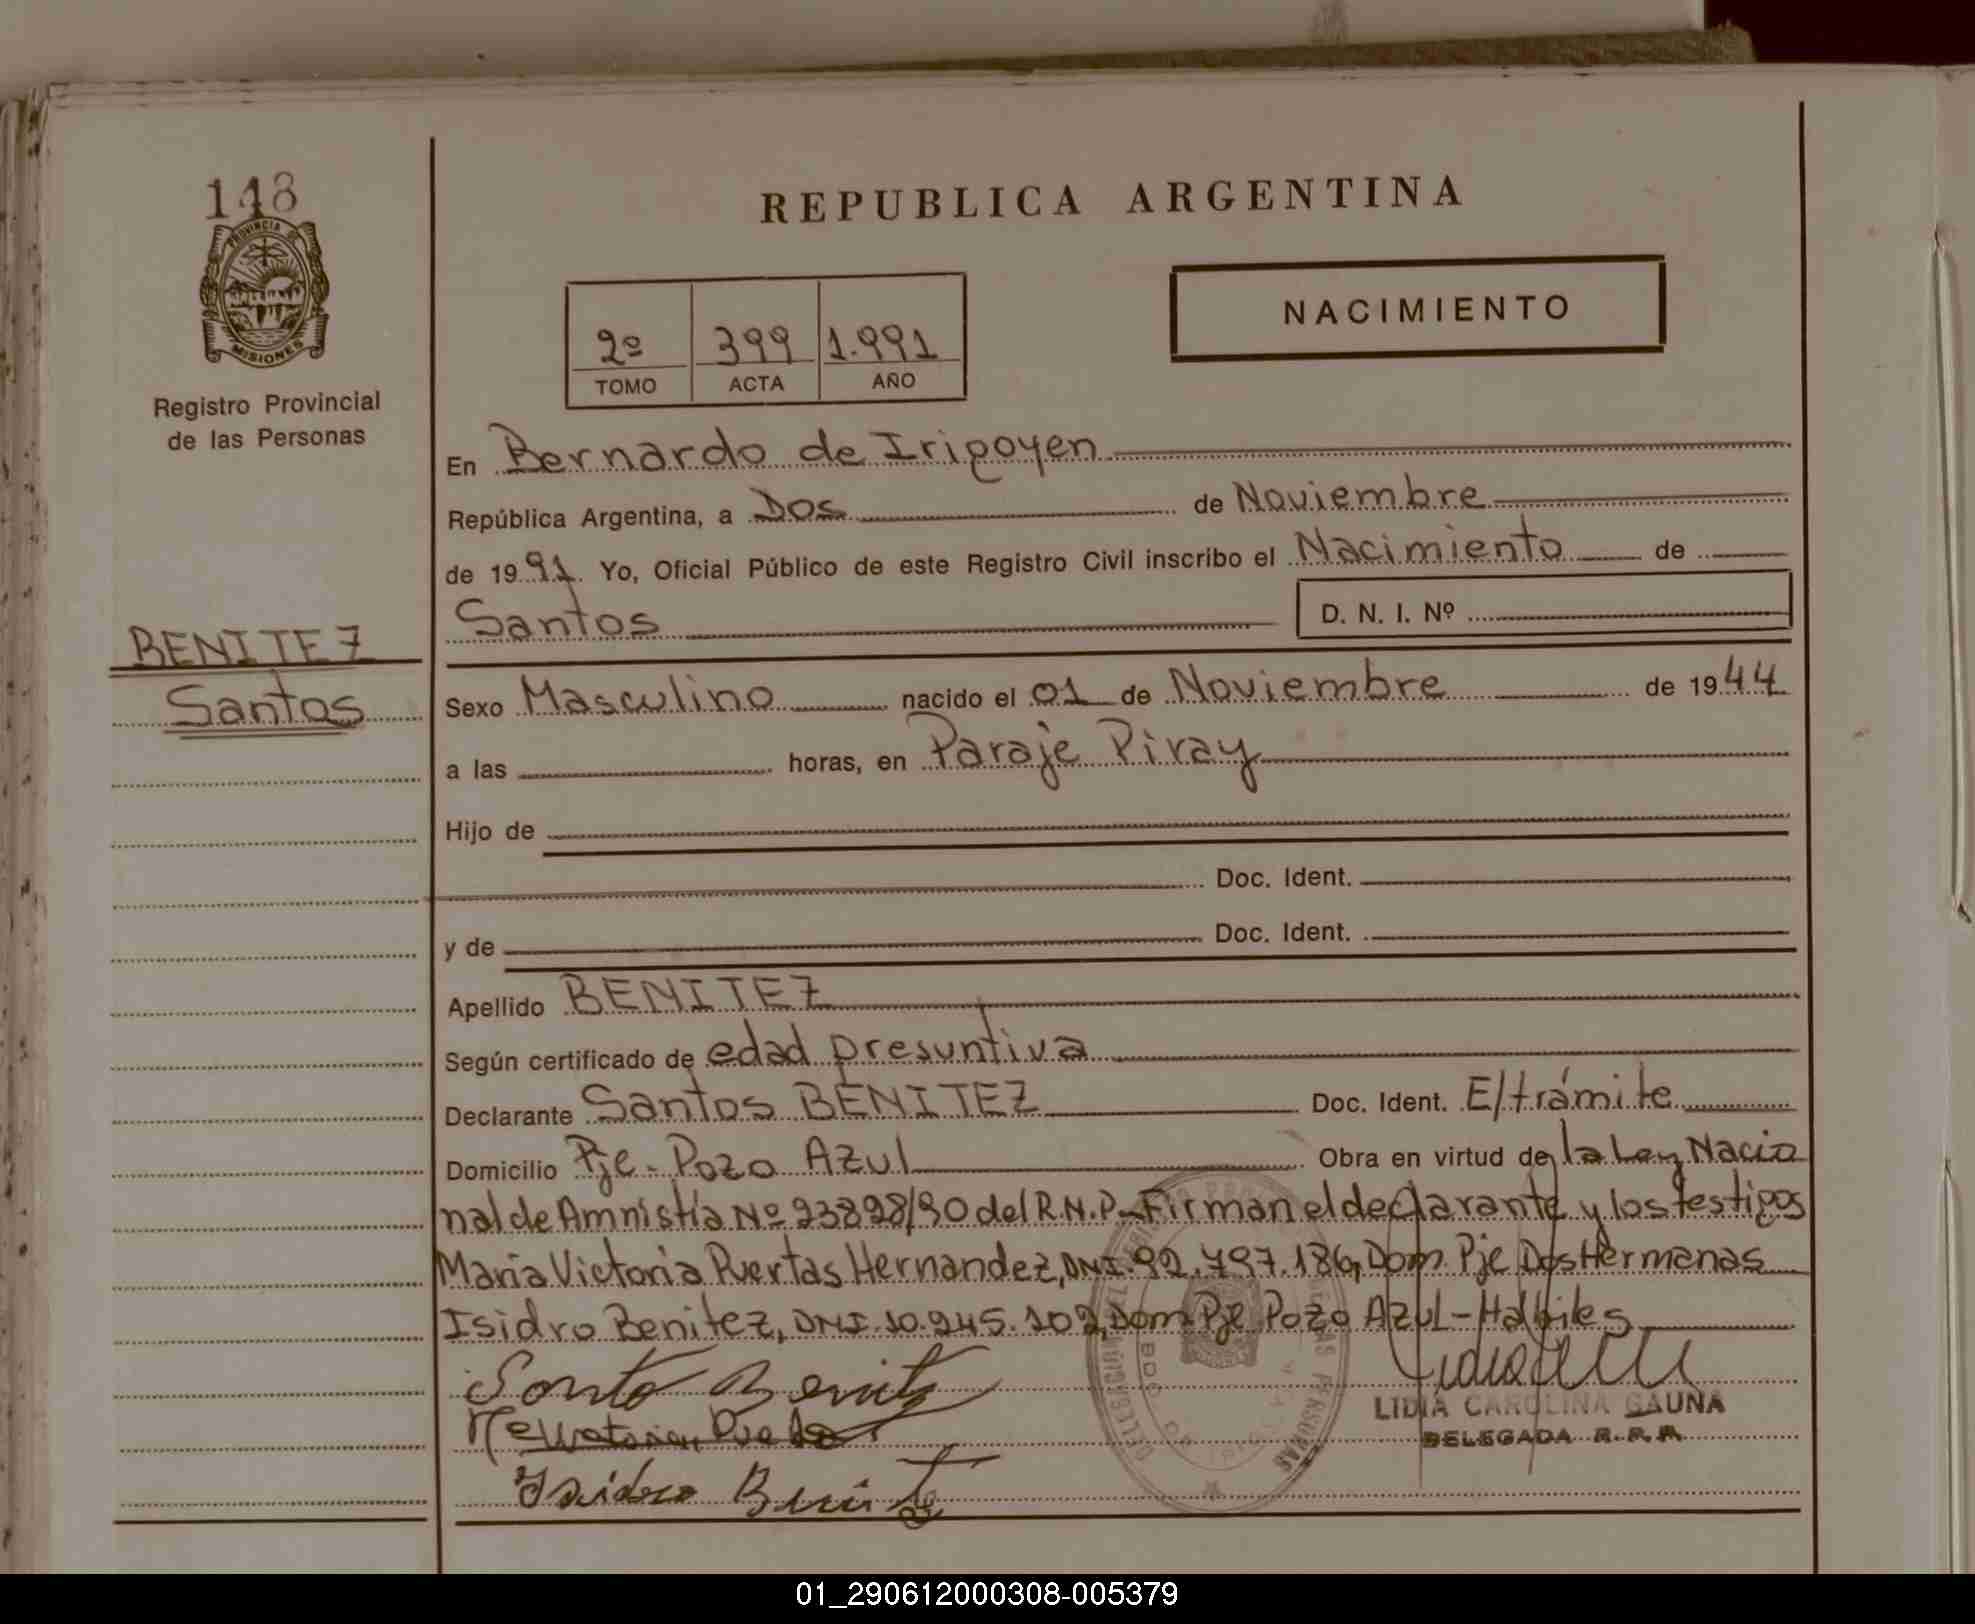 148
PROVINCIA DE
MISIONES
Registro Provincial
de las Personas
REPUBLICA ARGENTINA
2º 399 1.991
TOMO ACTA AÑO
NACIMIENTO
En Bernardo de Irigoyen
República Argentina, a Dos de Noviembre
de 1991. Yo, Oficial Público de este Registro Civil inscribo el Nacimiento de
Santos D. N. I. Nº
BENITEZ
Santos
Sexo Masculino nacido el 01 de Noviembre de 1944
a las horas, en Paraje Piray
Hijo de
Doc. Ident.
y de Doc. Ident.
Apellido BENITEZ
Según certificado de edad presuntiva
Declarante Santos BENITEZ Doc. Ident. E/trámite
Domicilio Pje. Pozo Azul Obra en virtud de la Ley Nacio
nal de Amnistía Nº 23828/90 del R.N.P_Firman el declarante y los testigos
Maria Victoria Puertas Hernandez, DNI. 92.797.186, Dom. Pje Dos Hermanas
Isidro Benitez, DNI. 10.245.102, Dom Pje Pozo Azul-Habiles
Santo Benitez
Isidro Benitez
LIDIA CAROLINA GAUNA
DELEGADA R. P. P.
01_290612000308-005379